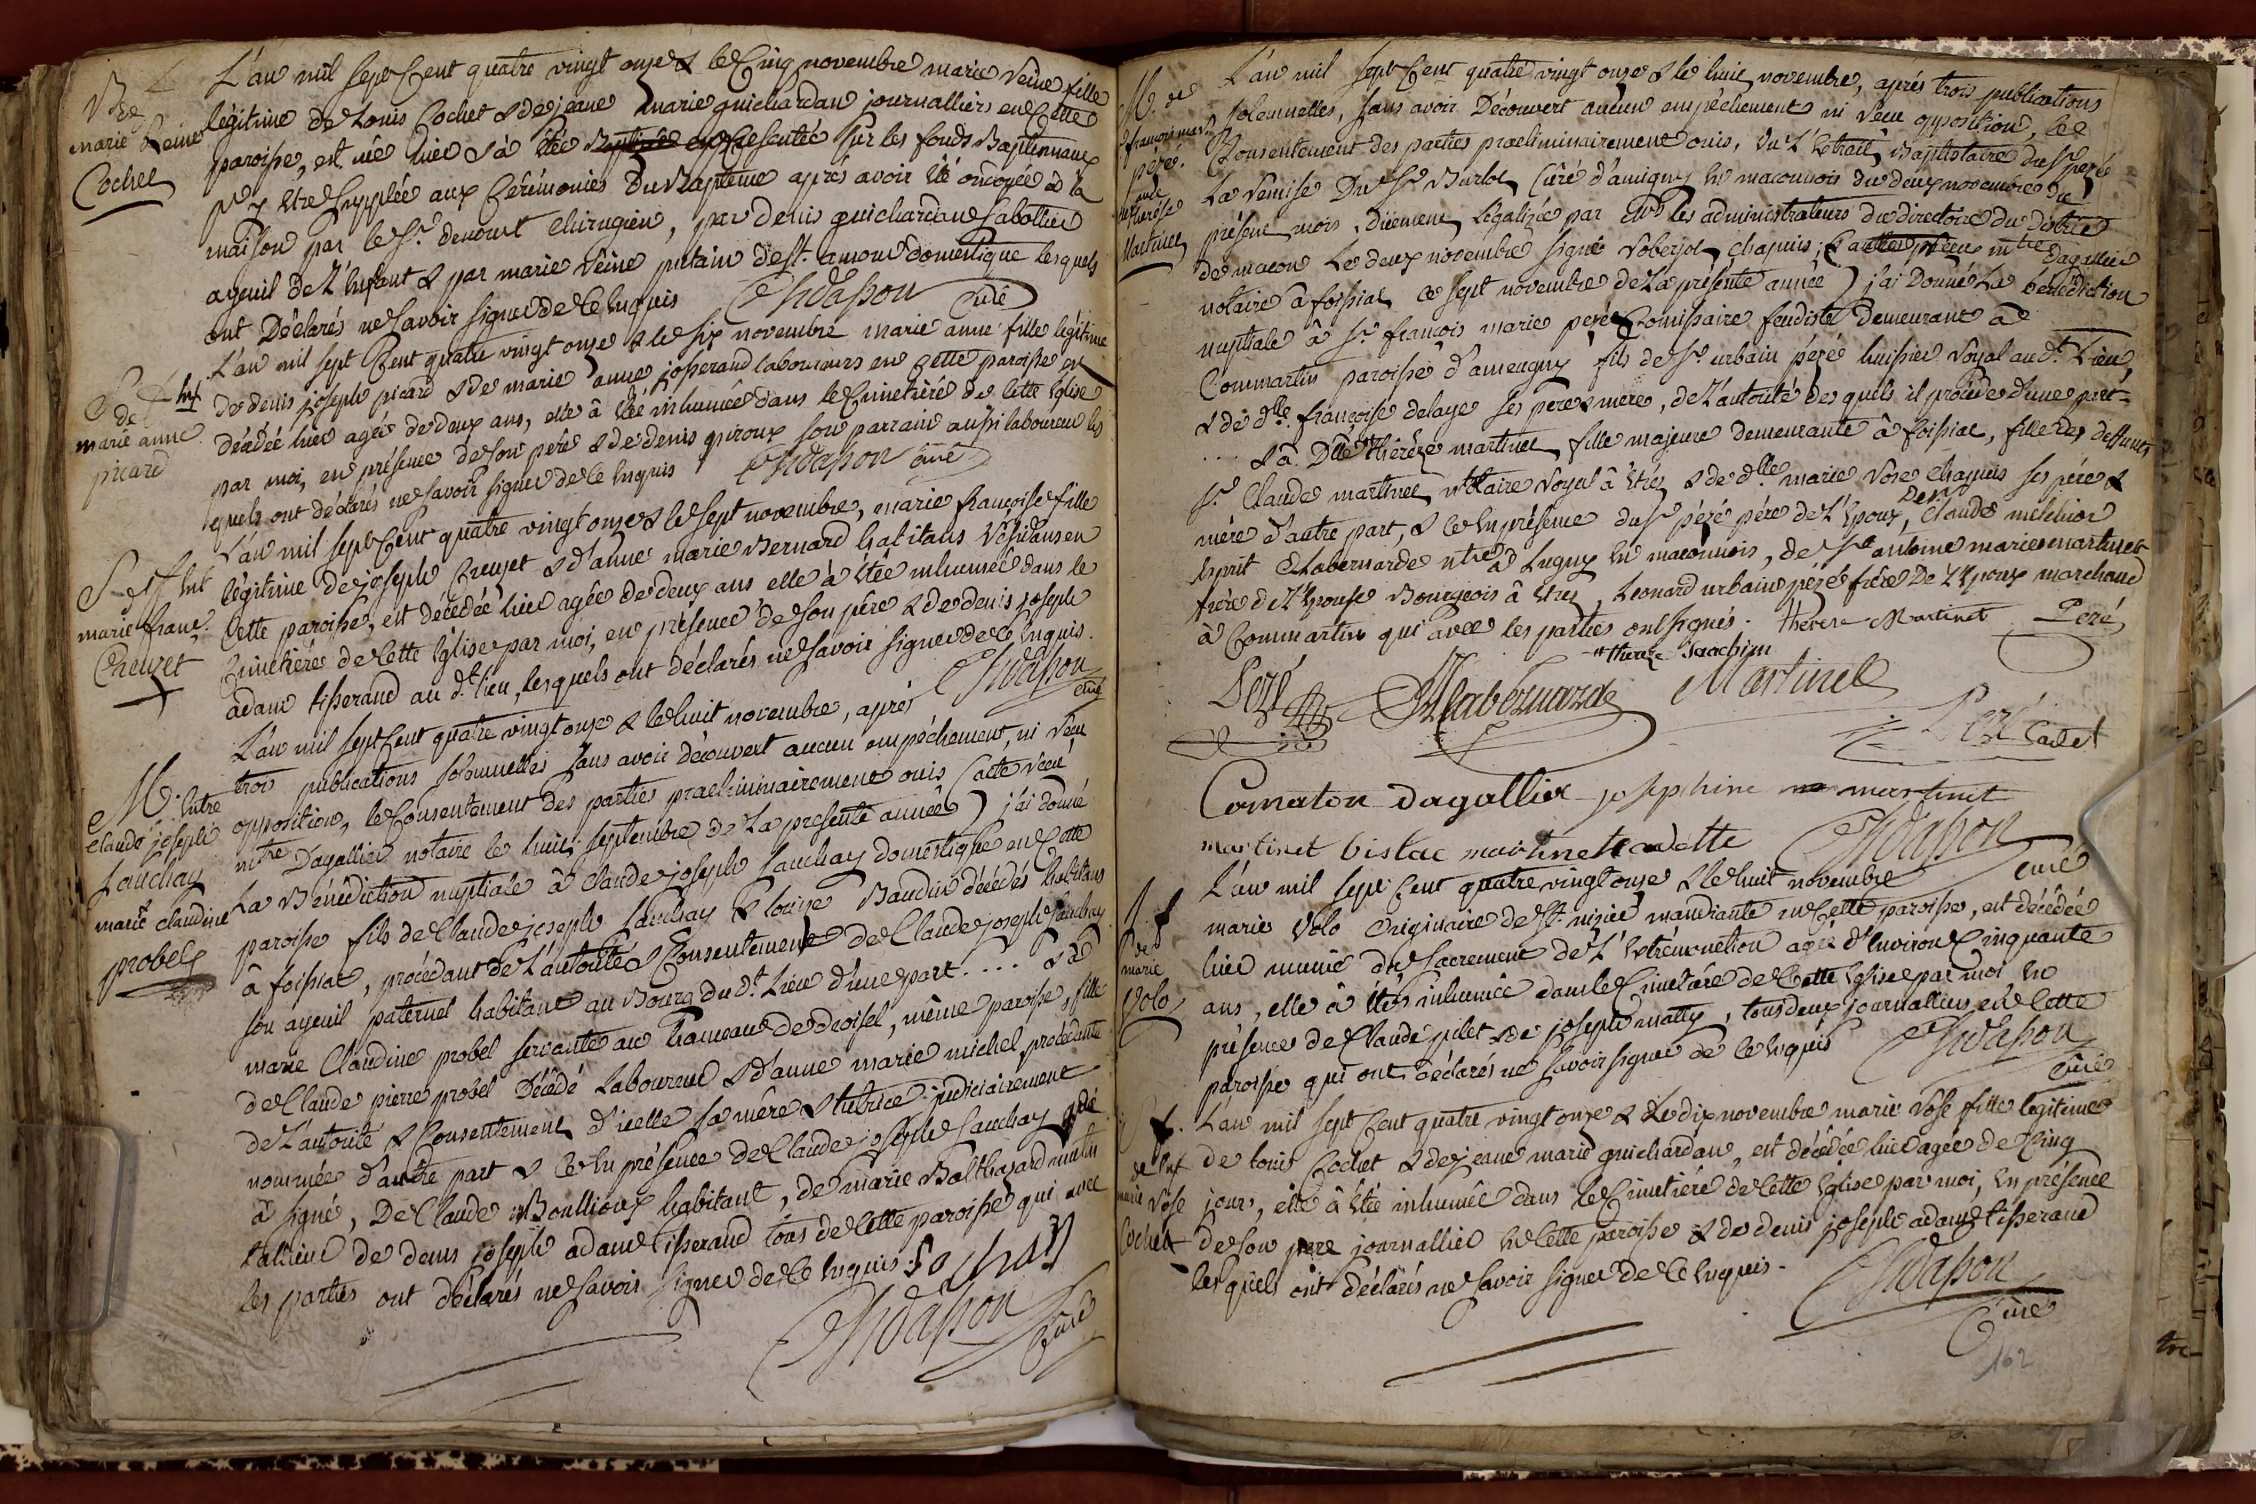 B. de
marie Reine
Cochet
L'an mil sept Cent quatre vingt onze & le Cinq novembre marie Reine fille
légitime de Louis Cochet & de jeane marie guichardan journalliers en Cette
paroisse, est née hier & à été Baptisée en Presentée sur les fonds Baptismaux
pr y etre Supplée aux Cérémonies Du Baptême aprés avoir été ondoyée à la
maison par le Sr. chirugien, par denis guichardan Sabottier
ayeuil de L'enfant & par marie Reine putain de St. amour domestique lesquels
ont Déclarés ne savoir signer de ce Enquis
Curé
S. de Enft
marie anne
picard
L'an mil sept Cent quatre vingt onze & le six novembre marie anne fille legitime
de denis joseph picard & de marie anne josserand laboureurs en Cette paroisse est
décédée hier agée de deux ans, elle à été inhumée dans le Cimetiére de Cette Eglise
par moi, en présence de son père & de denis guiroux son parrain aussi laboureur les
quels ont déclarés ne savoir signer de ce Enquis
curé
S. de Ent
marie franç.
Creuzet
L'an mil sept Cent quatre vingt onze & le sept novembre, marie françoise fille
légitime de joseph Creuzet & d'anne marie Bernard habitans Résidans en
Cette paroisse, est décédée hier agée de deux ans elle à étée inhumée dans le
Cimetiére de Cette Eglise par moi, en présence de son père & de denis joseph
adam tisserand au dt. lieu, lesquels ont déclarés ne savoir signer de ce Enquis.
curé
M. Entre
claude joseph
Sauchay
marie claudine
probel
L'an mil sept Cent quatre vingt onze & le huit novembre, aprés
trois publications solemnelles sans avoir découvert aucun empéchement, ni Réçu
opposition, le Consentement des parties praeliminairement ouis (acte Réçu
mtre Dagallier notaire le huit septembre de La presente année) j'ai donné
La Bénédiction nuptiale à Claude joseph Sauchay domestique en Cette
paroisse fils de Claude joseph Sauchay & louise Baudin décédés habitans
à foissiat, procédant de L'autorité & Consentement de Claude joseph Sauchay
son ayeuil paternel habitant au Bourg du dt. Lieu d'une part .... & à
marie Claudine probel servante au hameau de deoisel, même paroisse, fille
de Claude pierre probel Décédé Laboureur & d'anne marie michel, procédante
de L'autorité & Consentement d'icelle sa mère & tutrice judiciairement
nommée d'autre part & ce En présence de Claude joseph Sauchay qui
à signé, De Claude Boullioux habitant, de marie Balthazard mutin
tailleur de denis joseph adam tisserand tous de Cette paroisse qui avec
les parties ont déclarés ne savoir signer de ce Enquis. Sochay
Curé
M. de
françois marie
péré.
et de
thérése
Martinet
L'an mil sept Cent quatre vingt onze & le huit novembre, aprés trois publications
solemnelles, sans avoir Découvert aucun empéchement ni Réçu opposition, le
Consentement des parties praeliminairement ouis, Vu L'Extrait Baptistaire du Sr. peré
La Rémise Du Sr. Burlot Curé d'amigny En maconnois du deux novembre du
présent mois, duement Légalizée par Mrs les administrateurs du directoire du district
de macon Le deux novembre signé Roberjot, chapuis; & mtre Dagallier
notaire à foissiat ce sept novembre de La présente année) j'ai Donné La bénédiction
nuptiale à Sr. françois marie peré Comissaire feudiste demeurant à
Commartin paroisse d'ameugny fils de Sr. urbain péré huissier Royal au dt. Lieu,
& de dlle. françoise delaye ses pere & mère, de L'autorité des quels il procéde d'une part
.... & à Dlle thérèse martinet fille majeure demeurante à foissiat, fille des deffunts
Sr. Claude martinet notaire Royal à Etrez & de dlle marie Rose Chapuis ses père &
mère d'autre part, & ce En présence du Sr péré père de L'Epoux, De Sr Claude melchior
Esprit Delabernarde ntre à Lugny En maconnois, de Sr antoine marie martinet
frère de L'Epouse Bourgeois à Etrez, Leonard urbain péré frère De L'Epoux marchand
à Commartin qui avec les parties ont signés. therese Martinet Peré
thereze Joachim
Peré Delabernarde Martinet
Peré Cadet
Comaton Dagallier josephine martinet
martinet Vislac martinet cadette
Curé
S. de
marie
Volo
L'an mil sept Cent quatre vingt onze & le huit novembre
marie Volo Originaire de St. nizier mandiante En Cette paroisse, est décédée
hier munie du sacrement de L'Extrémonction agée d'Environ Cinquante
ans, elle à étée inhumée dans le Cimetiére de Cette Eglise par moi En
présence de Claude pilet & de joseph matty, tous deux journalliers en Cette
paroisse qui ont déclarés ne savoir signer de ce Enquis
Curé
S. de Enft
marie Rose
Cochet
L'an mil sept Cent quatre vingt onze & Le dix novembre marie Rose fille légitime
de Louis Cochet & de jeane marie guichardan, est décédée hier agée de Cinq
jours, elle à étée inhumée dans le Cimetiére de Cette Eglise par moi, En présence
de son pere journallier En Cette paroisse & de denis joseph adam tisserand
lesquels ont déclarés ne savoir signer de ce Enquis.
Curé
162